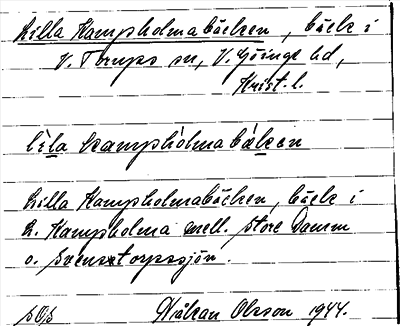 Lilla Kampholmabäcken, bäck i
V. Torups sn, V. Göinge hd,
Krist. l.
lila kampholmabäken
Lilla Kampholmabäcken, bäck i
L. Kampholma mell. Store Damm
o. Svenstorpssjön.
SOS Håkan Olsson 1944.